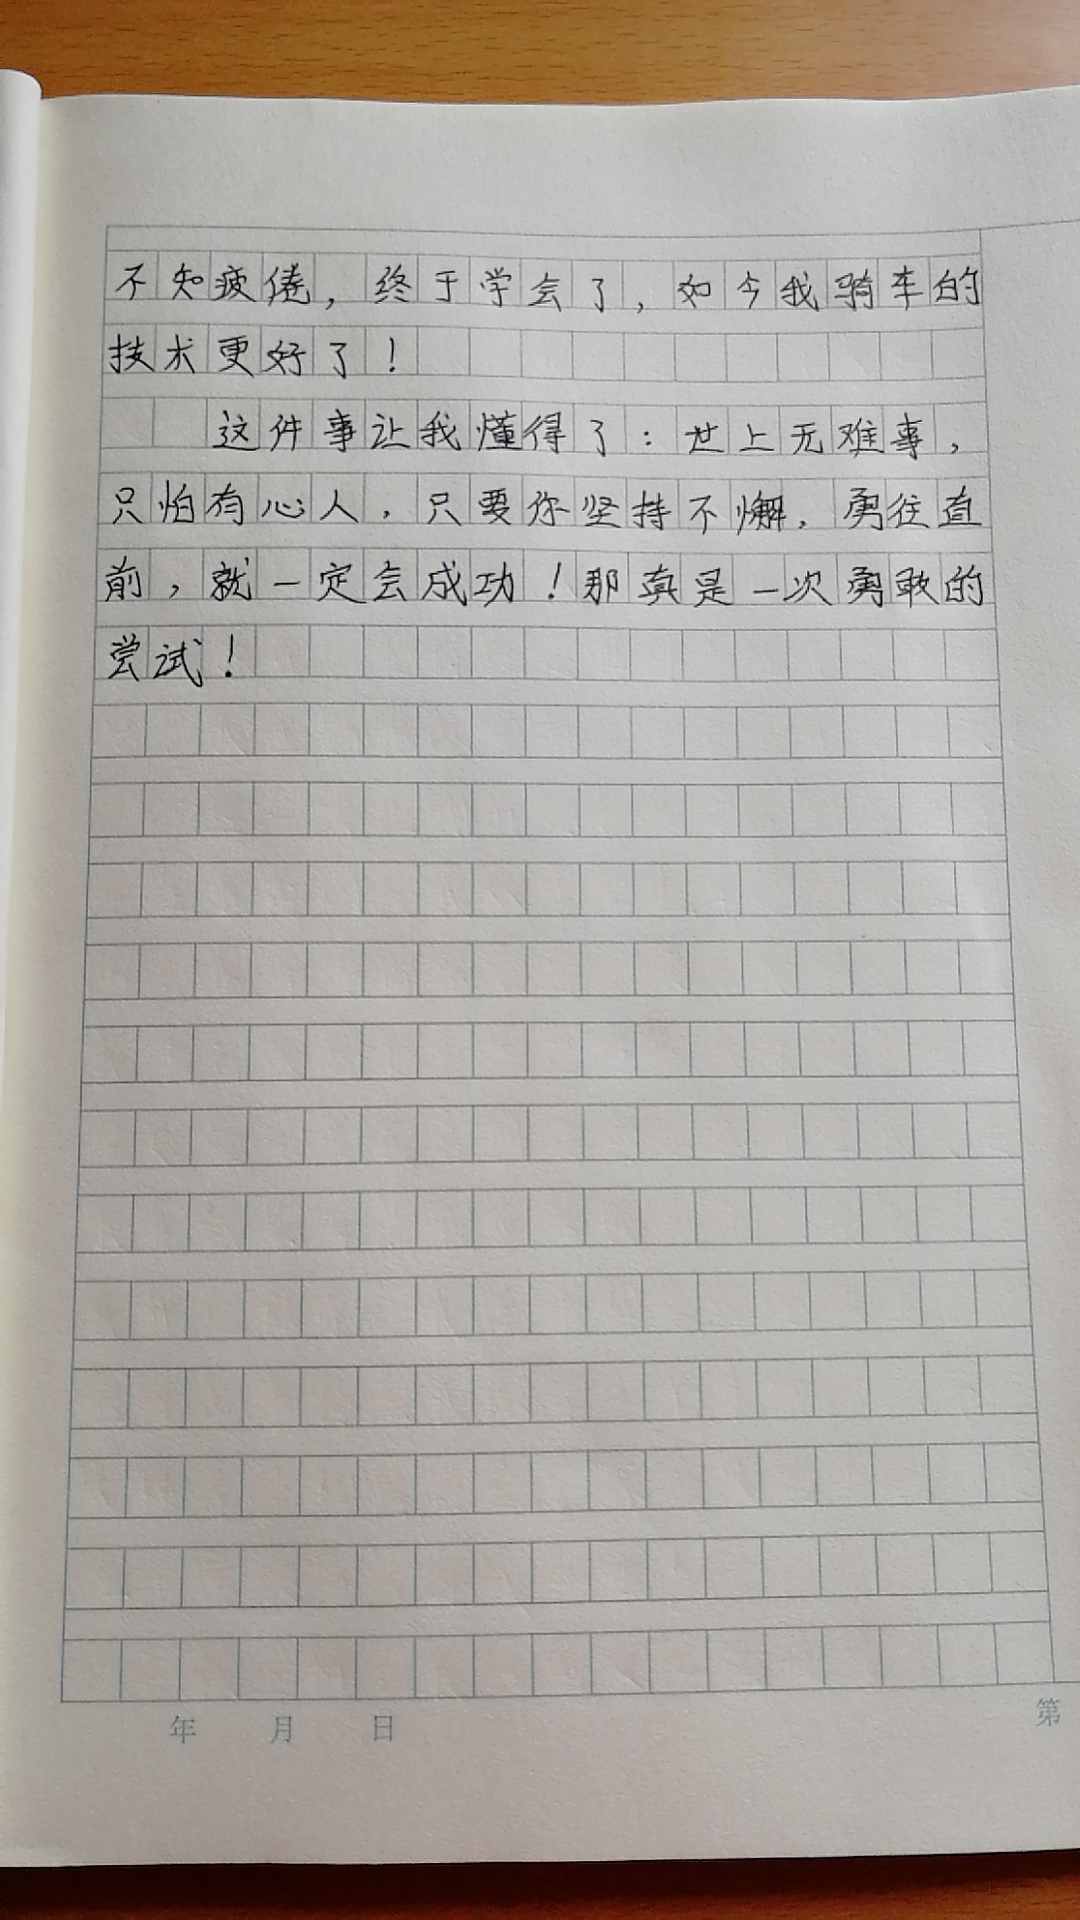 不知疲倦，终于学会了，如今我骑车的
技术更好了！
这件事让我懂得了：世上无难事，
只怕有心人，只要你坚持不懈，勇往直
前，就一定会成功！那真是一次勇敢的
尝试！
年 月 日
第